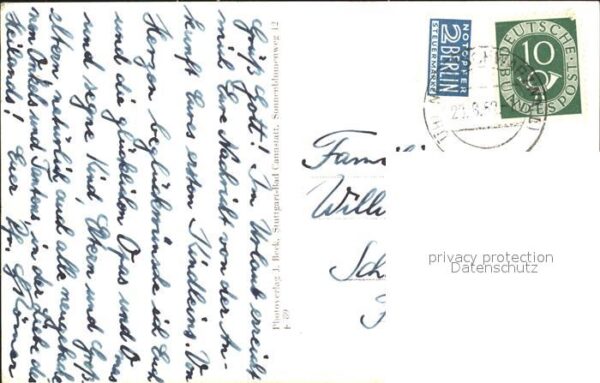 Grüß Gott! Im Urlaub erreicht
mich Eure Nachricht von der An-
kunft Eures ersten Kindleins. Von
Herzen beglückwünsche ich Euch
und die glücklichen Opas und Omas
und segne Kind, Eltern und Groß-
eltern natürlich auch alle neugebacke-
nen Onkels und Tanten, in der Liebe des
Heilands! Eur Pfr.
Photoverlag J. Beck, Stuttgart-Bad Cannstatt, Sonnenblumenweg 12
F 89
NOTOPFER
2 BERLIN
STEUERMARKE
DEUTSCHE
10
BUNDESPOST
Fami
Will
Sch
privacy protection
Datenschutz